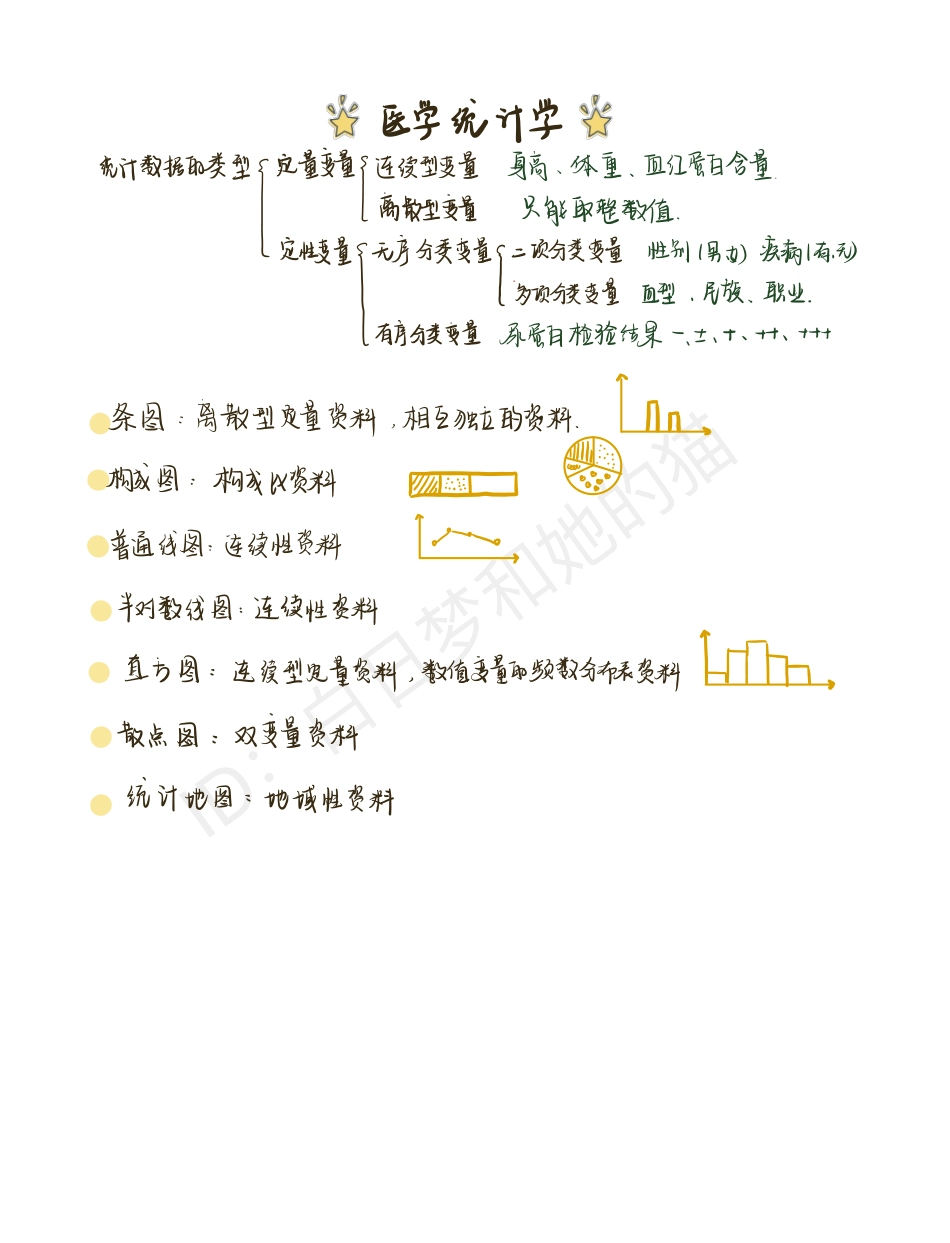 医学统计学
统计数据的类型 定量变量 连续型变量 身高、体重、血红蛋白含量.
离散型变量 只能取整数值.
定性变量 无序分类变量 二项分类变量 性别(男女) 疾病(有.无)
多项分类变量 血型、民族、职业.
有序分类变量 尿蛋白检验结果 -、±、+、++、+++
条图:离散型定量资料,相互独立的资料.
构成图:构成比资料
普通线图:连续性资料
半对数线图:连续性资料
直方图:连续型定量资料,数值变量的频数分布表资料
散点图:双变量资料
统计地图:地域性资料
ID:白日梦和她的猫